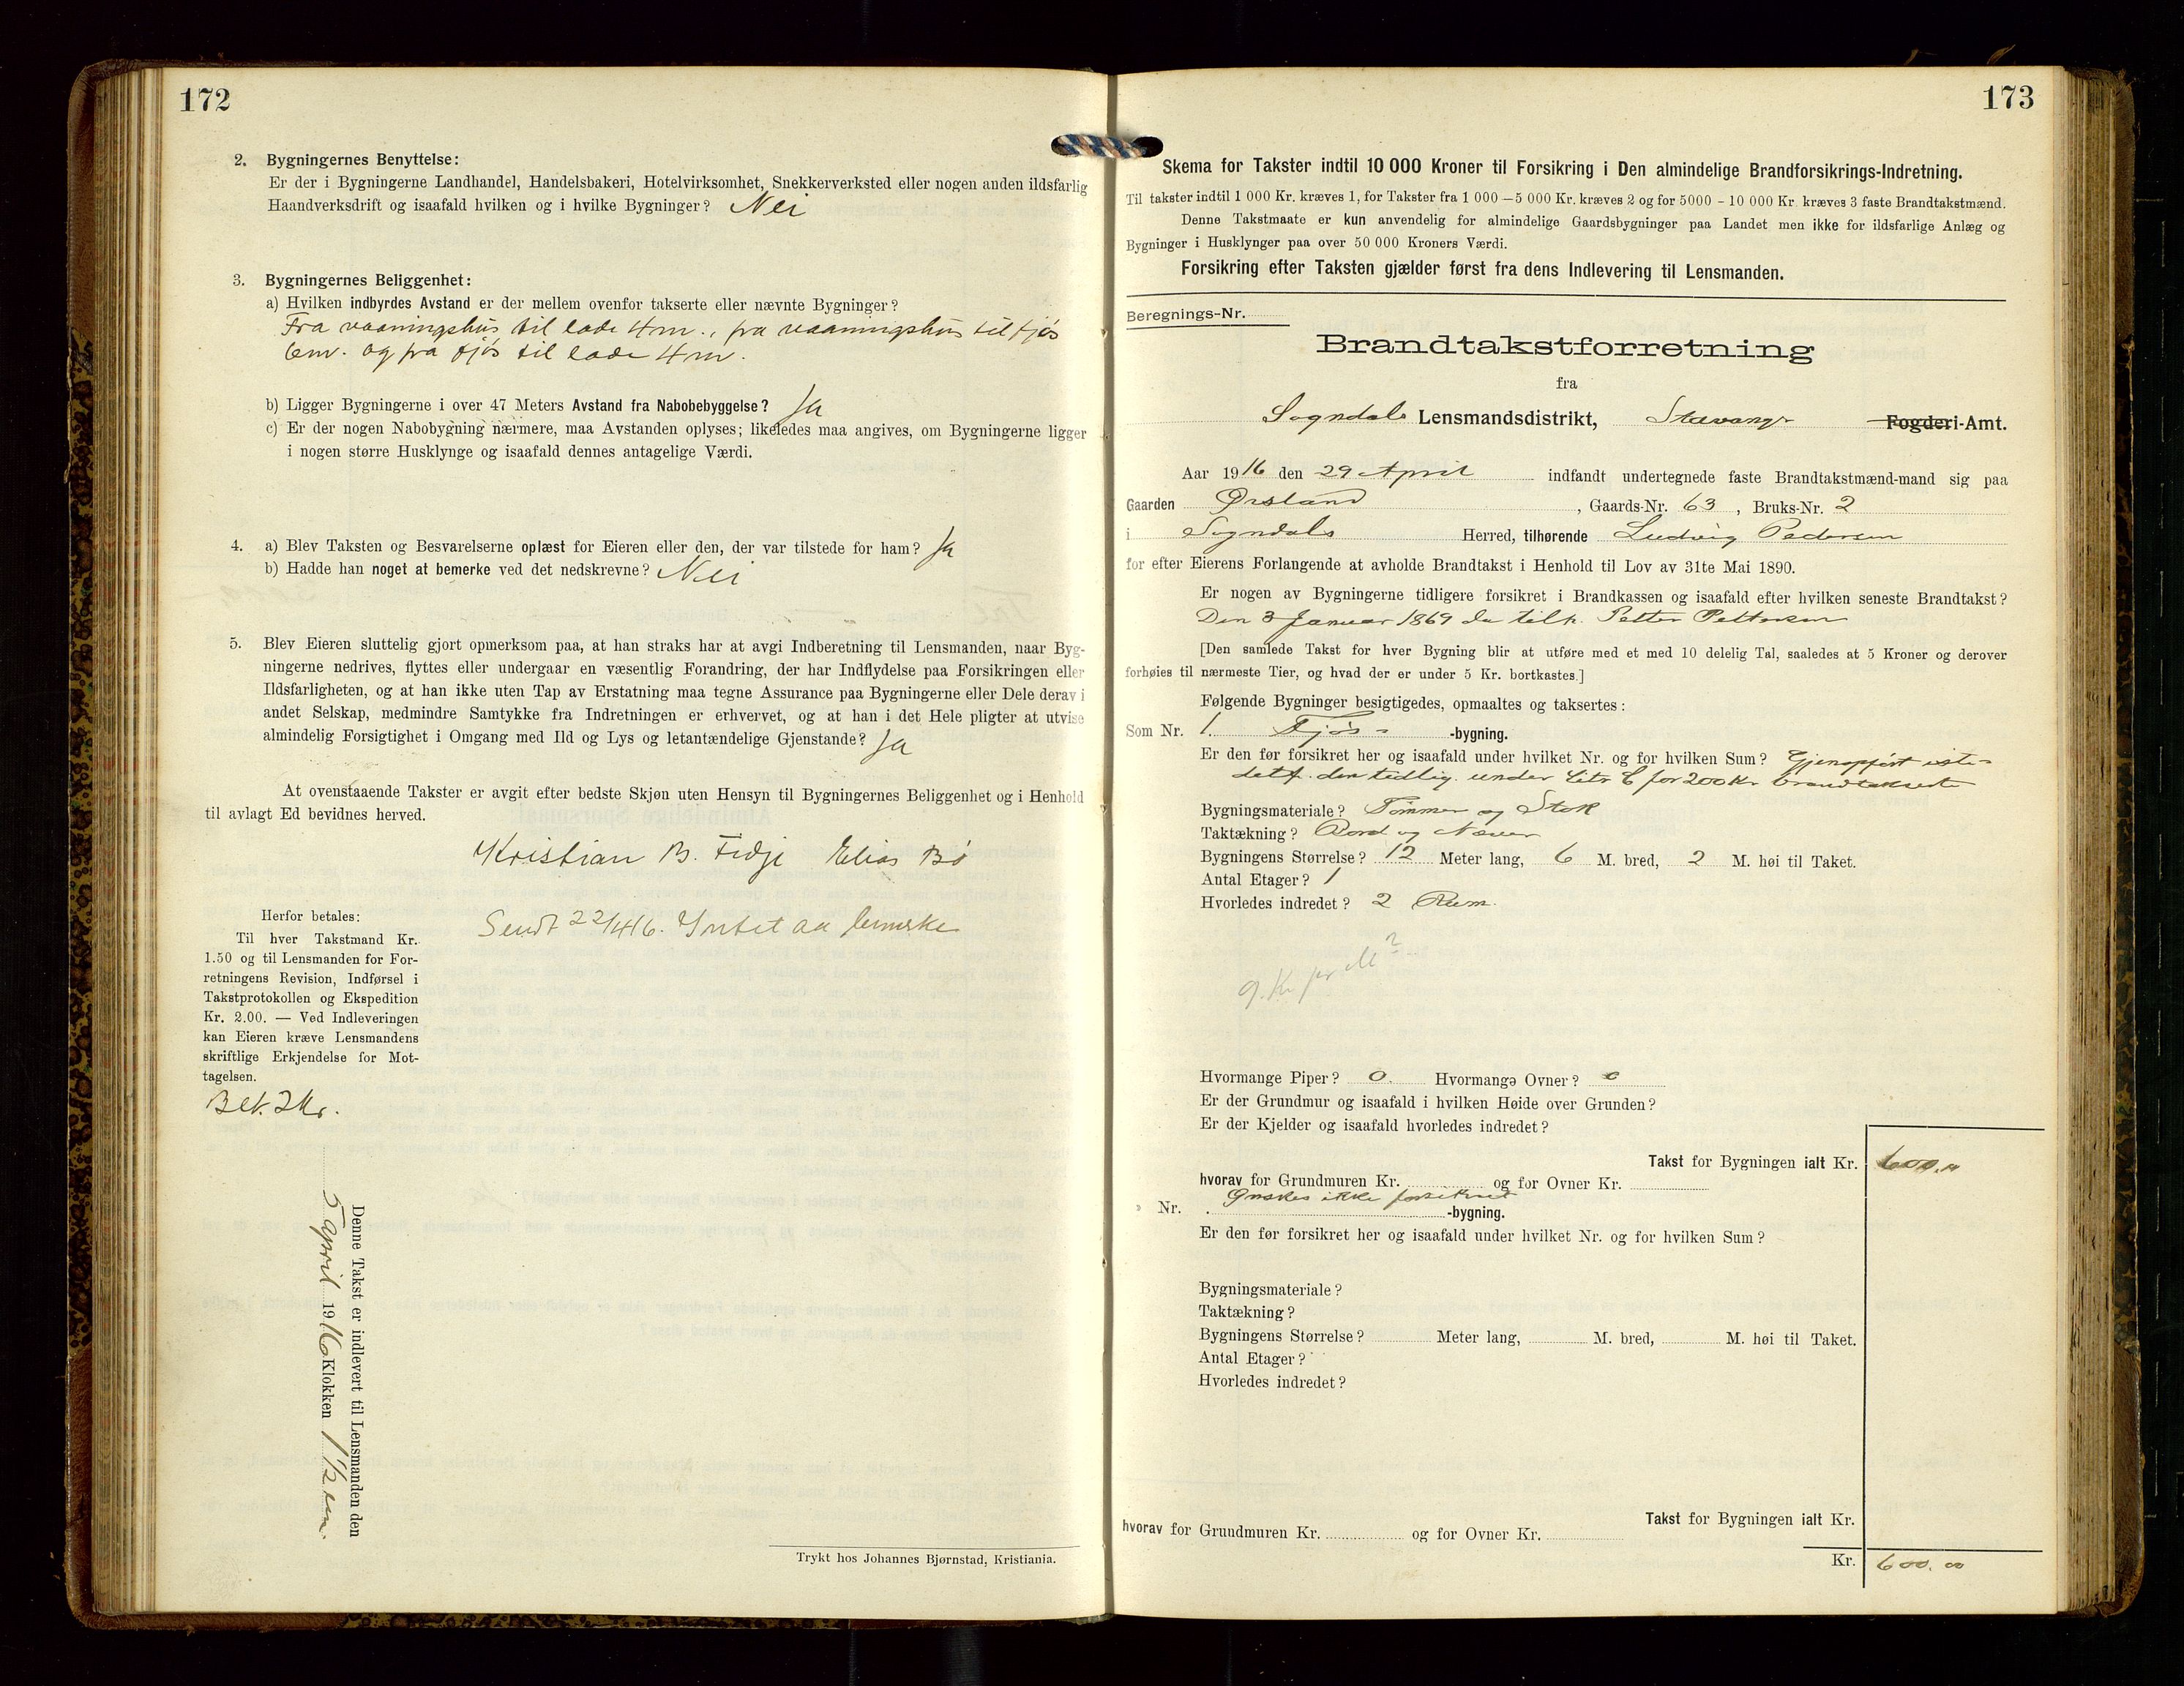 172
2. Bygningernes Benyttelse:
Er der i Bygningerne Landhandel, Handelsbakeri, Hotelvirksomhet, Snekkerverksted eller nogen anden ildsfarlig
Haandverksdrift og isaafald hvilken og i hvilke Bygninger? Nei
3. Bygningernes Beliggenhet:
a) Hvilken indbyrdes Avstand er der mellem ovenfor takserte eller nævnte Bygninger?
Fra vaaningshus til lade 4 m., fra vaaningshus til fjøs
6m. og fra fjøs til lade 4 m.
b) Ligger Bygningerne i over 47 Meters Avstand fra Nabobebyggelse? Ja
c) Er der nogen Nabobygning nærmere, maa Avstanden oplyses; likeledes maa angives, om Bygningerne ligger
i nogen større Husklynge og isaafald dennes antagelige Værdi.
4. a) Blev Taksten og Besvarelserne oplæst for Eieren eller den, der var tilstede for ham? Ja
b) Hadde han noget at bemerke ved det nedskrevne? Nei
5. Blev Eieren sluttelig gjort opmerksom paa, at han straks har at avgi Indberetning til Lensmanden, naar Byg-
ningerne nedrives, flyttes eller undergaar en væsentlig Forandring, der har Indflydelse paa Forsikringen eller
Ildsfarligheten, og at han ikke uten Tap av Erstatning maa tegne Assurance paa Bygningerne eller Dele derav i
andet Selskap, medmindre Samtykke fra Indretningen er erhvervet, og at han i det Hele pligter at utvise
almindelig Forsigtighet i Omgang med Ild og Lys og letantændelige Gjenstande? Ja
At ovenstaaende Takster er avgit efter bedste Skjøn uten Hensyn til Bygningernes Beliggenhet og i Henhold
til avlagt Ed bevidnes herved.
Kristian B. Fidje Elias Bø
Sendt 22/4 16. Intet aa bemerke
Herfor betales:
Til hver Takstmand Kr.
1.50 og til Lensmanden for For-
retningens Revision, Indførsel i
Takstprotokollen og Ekspedition
Kr. 2.00. — Ved Indleveringen
kan Eieren kræve Lensmandens
skriftlige Erkjendelse for Mot-
tagelsen.
Bet. 2 Kr.
Denne Takst er indlevert til Lensmanden den
5 April 1916 Klokken 1 1/2 em.
Trykt hos Johannes Bjørnstad, Kristiania.
173
Skema for Takster indtil 10 000 Kroner til Forsikring i Den almindelige Brandforsikrings-Indretning.
Til takster indtil 1 000 Kr. kræves 1, for Takster fra 1 000 – 5 000 Kr. kræves 2 og for 5000 - 10 000 Kr. kræves 3 faste Brandtakstmænd.
Denne Takstmaate er kun anvendelig for almindelige Gaardsbygninger paa Landet men ikke for ildsfarlige Anlæg og
Bygninger i Husklynger paa over 50 000 Kroners Værdi.
Forsikring efter Taksten gjælder først fra dens Indlevering til Lensmanden.
Beregnings-Nr.
Brandtakstforretning
fra
Sogndals Lensmandsdistrikt, Stavanger Fogderi-Amt.
Aar 1916 den 29 April indfandt undertegnede faste Brandtakstmænd-mand sig paa
Gaarden Ørsland, Gaards-Nr. 63, Bruks-Nr. 2
i Sogndals Herred, tilhørende Ludvig Pedersen
for efter Eierens Forlangende at avholde Brandtakst i Henhold til Lov av 31te Mai 1890.
Er nogen av Bygningerne tidligere forsikret i Brandkassen og isaafald efter hvilken seneste Brandtakst?
Den 3 Januar 1869 da tilh. Petter Pettersen
[Den samlede Takst for hver Bygning blir at utføre med et med 10 delelig Tal, saaledes at 5 Kroner og derover
forhøies til nærmeste Tier, og hvad der er under 5 Kr. bortkastes.]
Følgende Bygninger besigtigedes, opmaaltes og taksertes:
Som Nr. 1. Fjøs- -bygning.
Er den før forsikret her og isaafald under hvilket Nr. og for hvilken Sum? Gjenopført iste-
detf. den tidlig. under Litr C for 200 Kr brandtakserte
Bygningsmateriale? Tømmer og Stok
Taktækning? Bord og Næver
Bygningens Størrelse? 12 Meter lang, 6 M. bred, 2 M. høi til Taket.
Antal Etager? 1
Hvorledes indredet? 2 Rum.
9. Kr pr M²
Hvormange Piper? 0. Hvormange Ovner? 0
Er der Grundmur og isaafald i hvilken Høide over Grunden?
Er der Kjelder og isaafald hvorledes indredet?
Takst for Bygningen ialt Kr. 600.00
hvorav for Grundmuren Kr. og for Ovner Kr.
Ønskes ikke forsikret
» Nr. -bygning.
Er den før forsikret her og isaafald under hvilket Nr. og for hvilken Sum?
Bygningsmateriale?
Taktækning?
Bygningens Størrelse? Meter lang, M. bred, M. høi til Taket.
Antal Etager?
Hvorledes indredet?
Takst for Bygningen ialt Kr.
hvorav for Grundmuren Kr. og for Ovner Kr.
Kr. 600.00